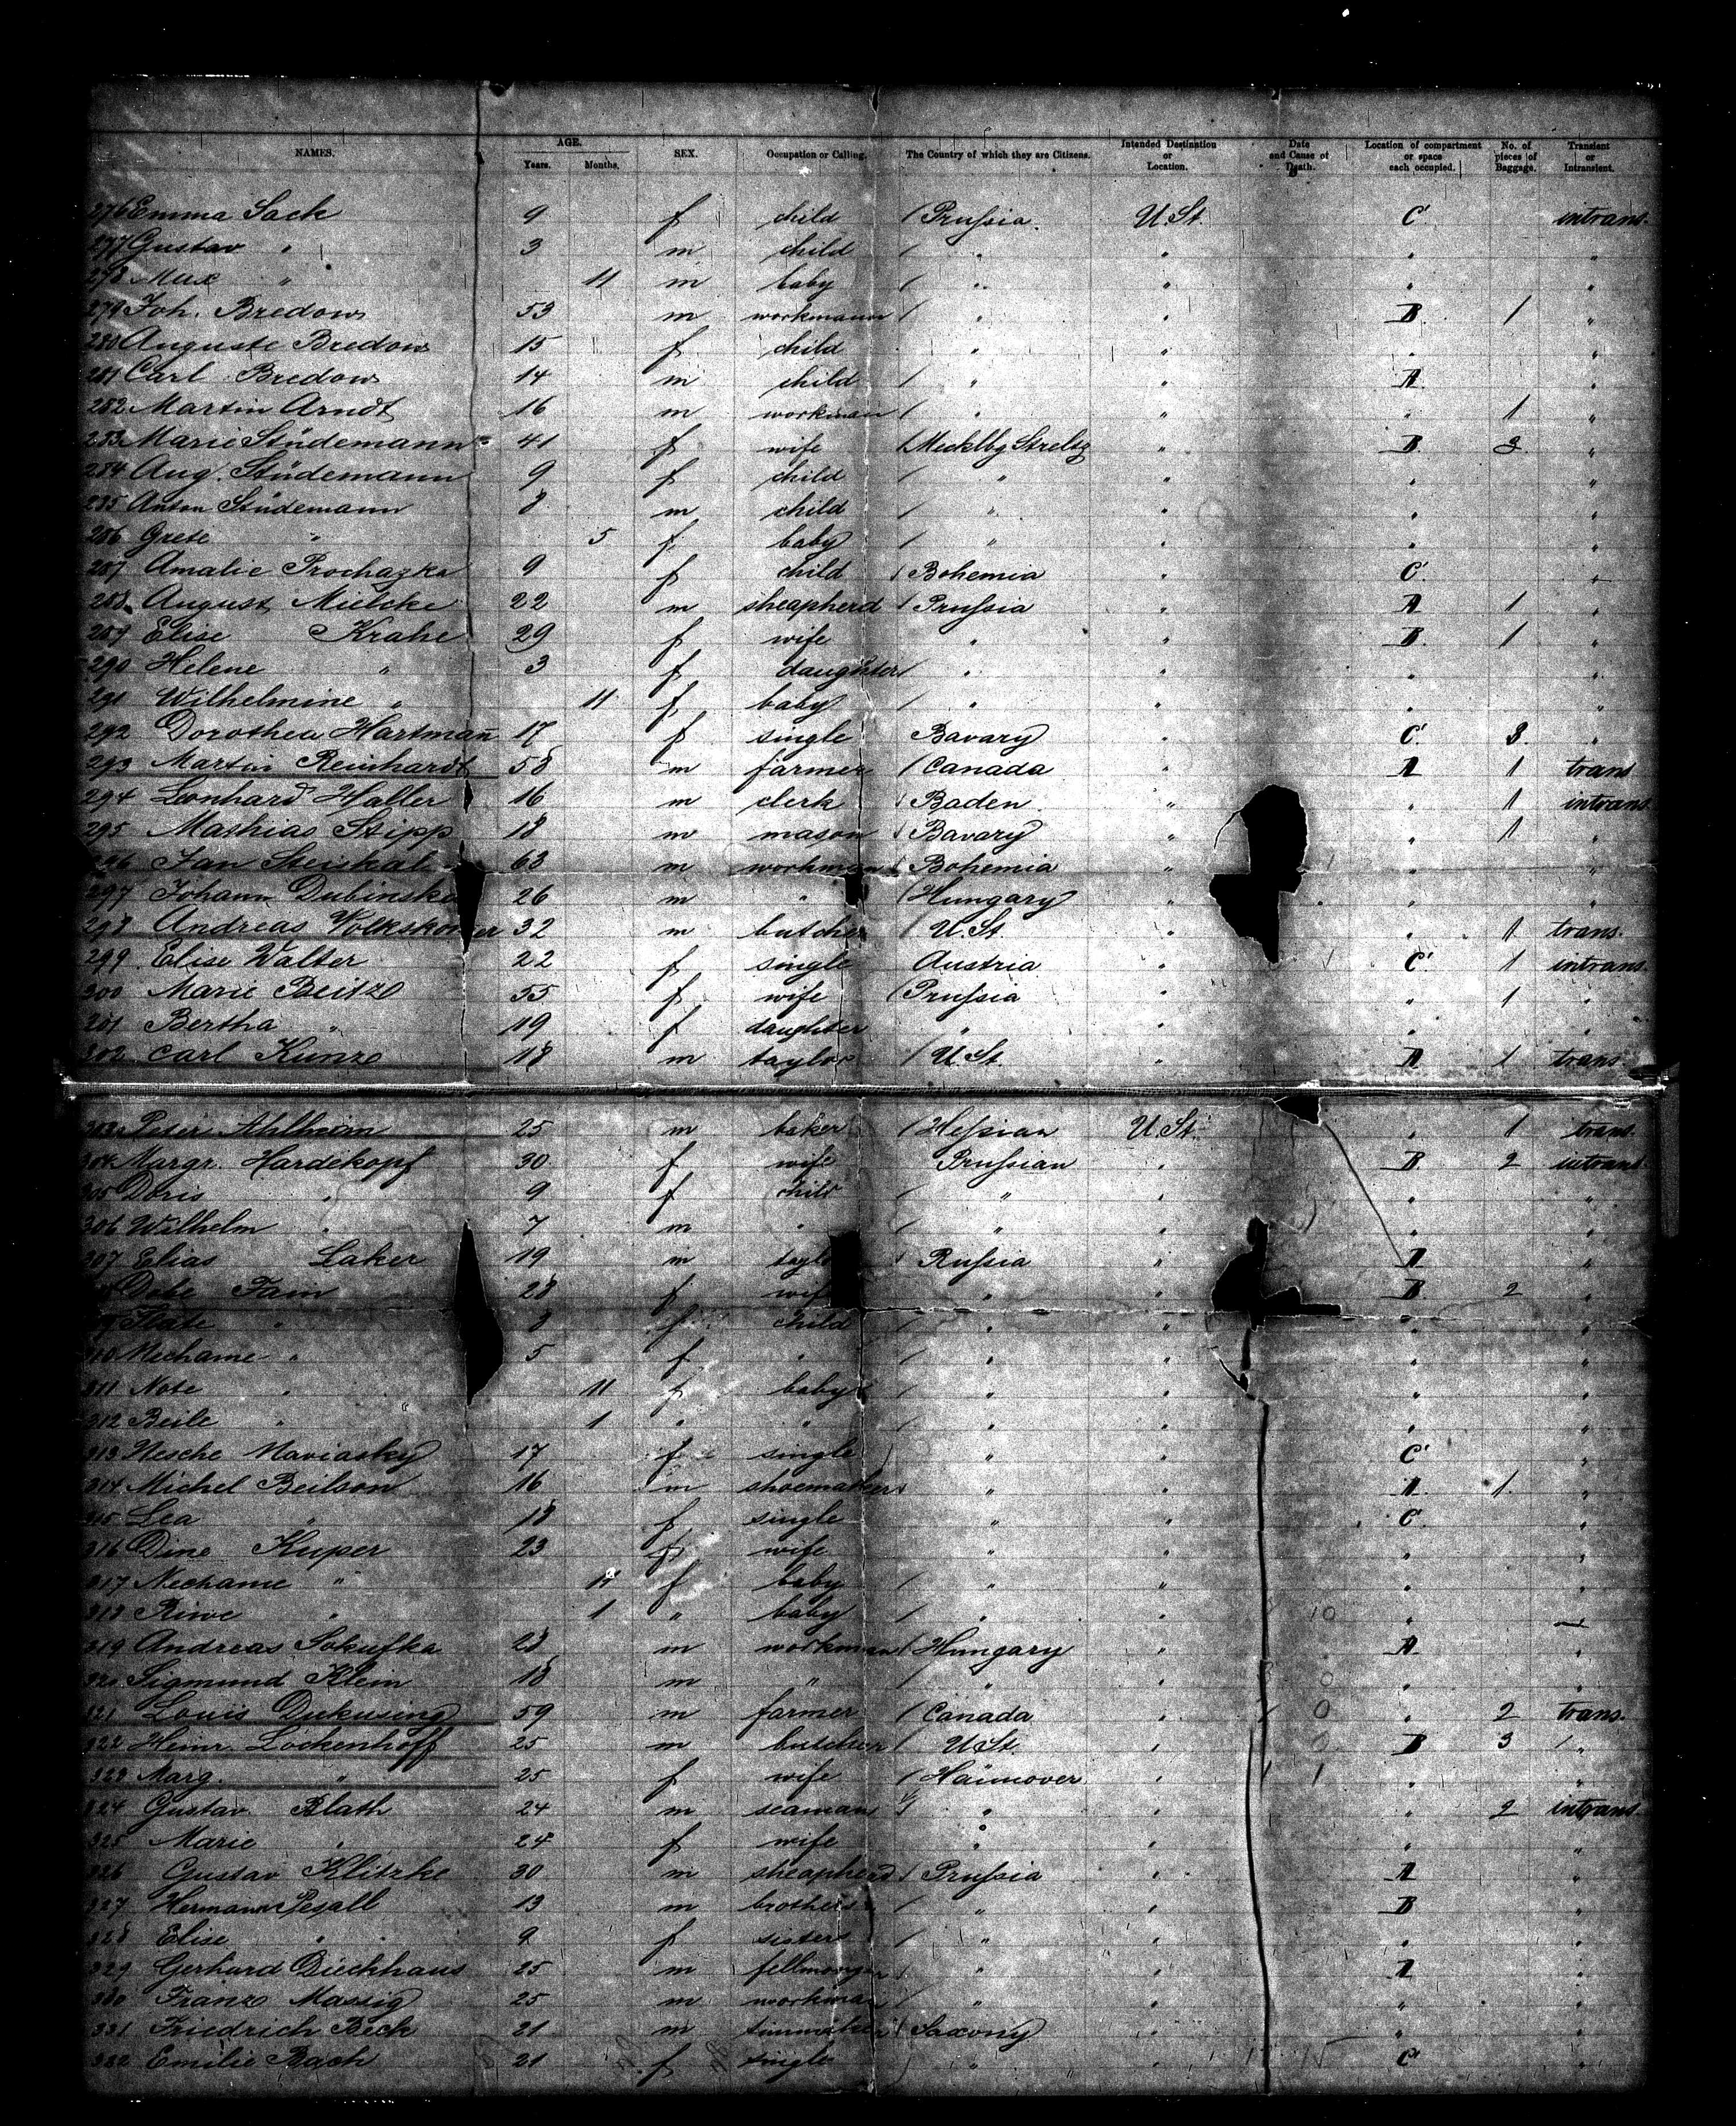 NAMES. AGE. Years. Months. SEX. Occupation or Calling. The Country of which they are Citizens. Intended Destination or Location. Date and Cause of Death. Location of compartment or space each occupied. No. of pieces of Baggage. Transient or Intransient.
276 Emma Sack 9 f child Prussia. U. St. C intrans.
277 Gustav " 3 m child " " " "
278 Max " 11 m baby " " " "
279 Joh. Bredow 53 m workmann " " B 1 "
280 Auguste Bredow 15 f child " " " "
281 Carl Bredow 14 m child " " A "
282 Martin Arndt 16 m workman " " " 1 "
283 Marie Stüdemann 41 f wife Mecklbg Strelitz " B 3 "
284 Aug. Stüdemann 9 f child " " " "
285 Anton Stüdemann 8 m child " " " "
286 Grete " 5 f baby " " " "
287 Amalie Prochazka 9 f child Bohemia " C "
288 August Mielcke 22 m sheapherd Prussia " A 1 "
289 Elise Krahe 29 f wife " " B 1 "
290 Helene " 3 f daughter " " " "
291 Wilhelmine " 11 f baby " " " "
292 Dorothea Hartman 17 f single Bavary " C 3 "
293 Martin Reinhardt 58 m farmer Canada " A 1 trans
294 Leonhard Haller 16 m clerk Baden " " 1 intrans
295 Mathias Stipp 18 m mason Bavary " " 1 "
296 Jan Steiskal 63 m workman Bohemia " " "
297 Johann Dubinsk 26 m " Hungary " " "
298 Andreas 32 m butcher U. St. " " 1 trans.
299 Elise Walter 22 f single Austria " C 1 intrans.
300 Marie Beitze 55 f wife Prussia " " 1 "
301 Bertha " 19 f daughter " " " "
302 Carl Kunze 18 m taylor U. St. " A 1 trans.
303 Peter Ahlheim 25 m baker Hessian U. St. " 1 trans.
304 Margr. Hardekopf 30 f wife Prussian " B 2 intrans.
305 Doris " 9 f child " " " "
306 Wilhelm " 7 m " " " " "
307 Elias Laker 19 m taylo Russia " A "
Debe Fain 28 f wif " " B 2 "
" 8 f child " " " "
310 Nechame " 5 f " " " " "
311 Note " 11 f baby " " " "
312 Beile " 1 " " " " " "
313 Hesche Maviasky 17 f single " " C "
314 Michel Beilson 16 m shoemaker " " A 1 "
315 Lea " 18 f single " " C "
316 Dine Kuper 23 f wife " " " "
317 Nechame " 11 f baby " " " "
318 Riwe " 1 " baby " " "
319 Andreas Sokufka 23 m workman Hungary " A "
320 Sigmund Klein 18 m " " " " "
321 Louis Dukusing 59 m farmer Canada " " 2 trans.
322 Heinr. Lockenhoff 25 m butcher U St. " B 3 "
323 Marg. " 25 f wife Hannover " " "
324 Gustav Blath 24 m seaman " " " 2 intrans.
325 Marie " 24 f wife " " " "
326 Gustav Klitzke 30 m sheapherd Prussia " A "
327 Hermann Pesall 13 m brother " " B "
328 Elise " 9 f sister " " " "
329 Gerhard Dieckhaus 25 m fellmonger " " A "
330 Franz Massig 25 m workman " " " "
331 Friedrich Beck 21 m Saxony " " "
332 Emilie Bach 21 f single " " C "